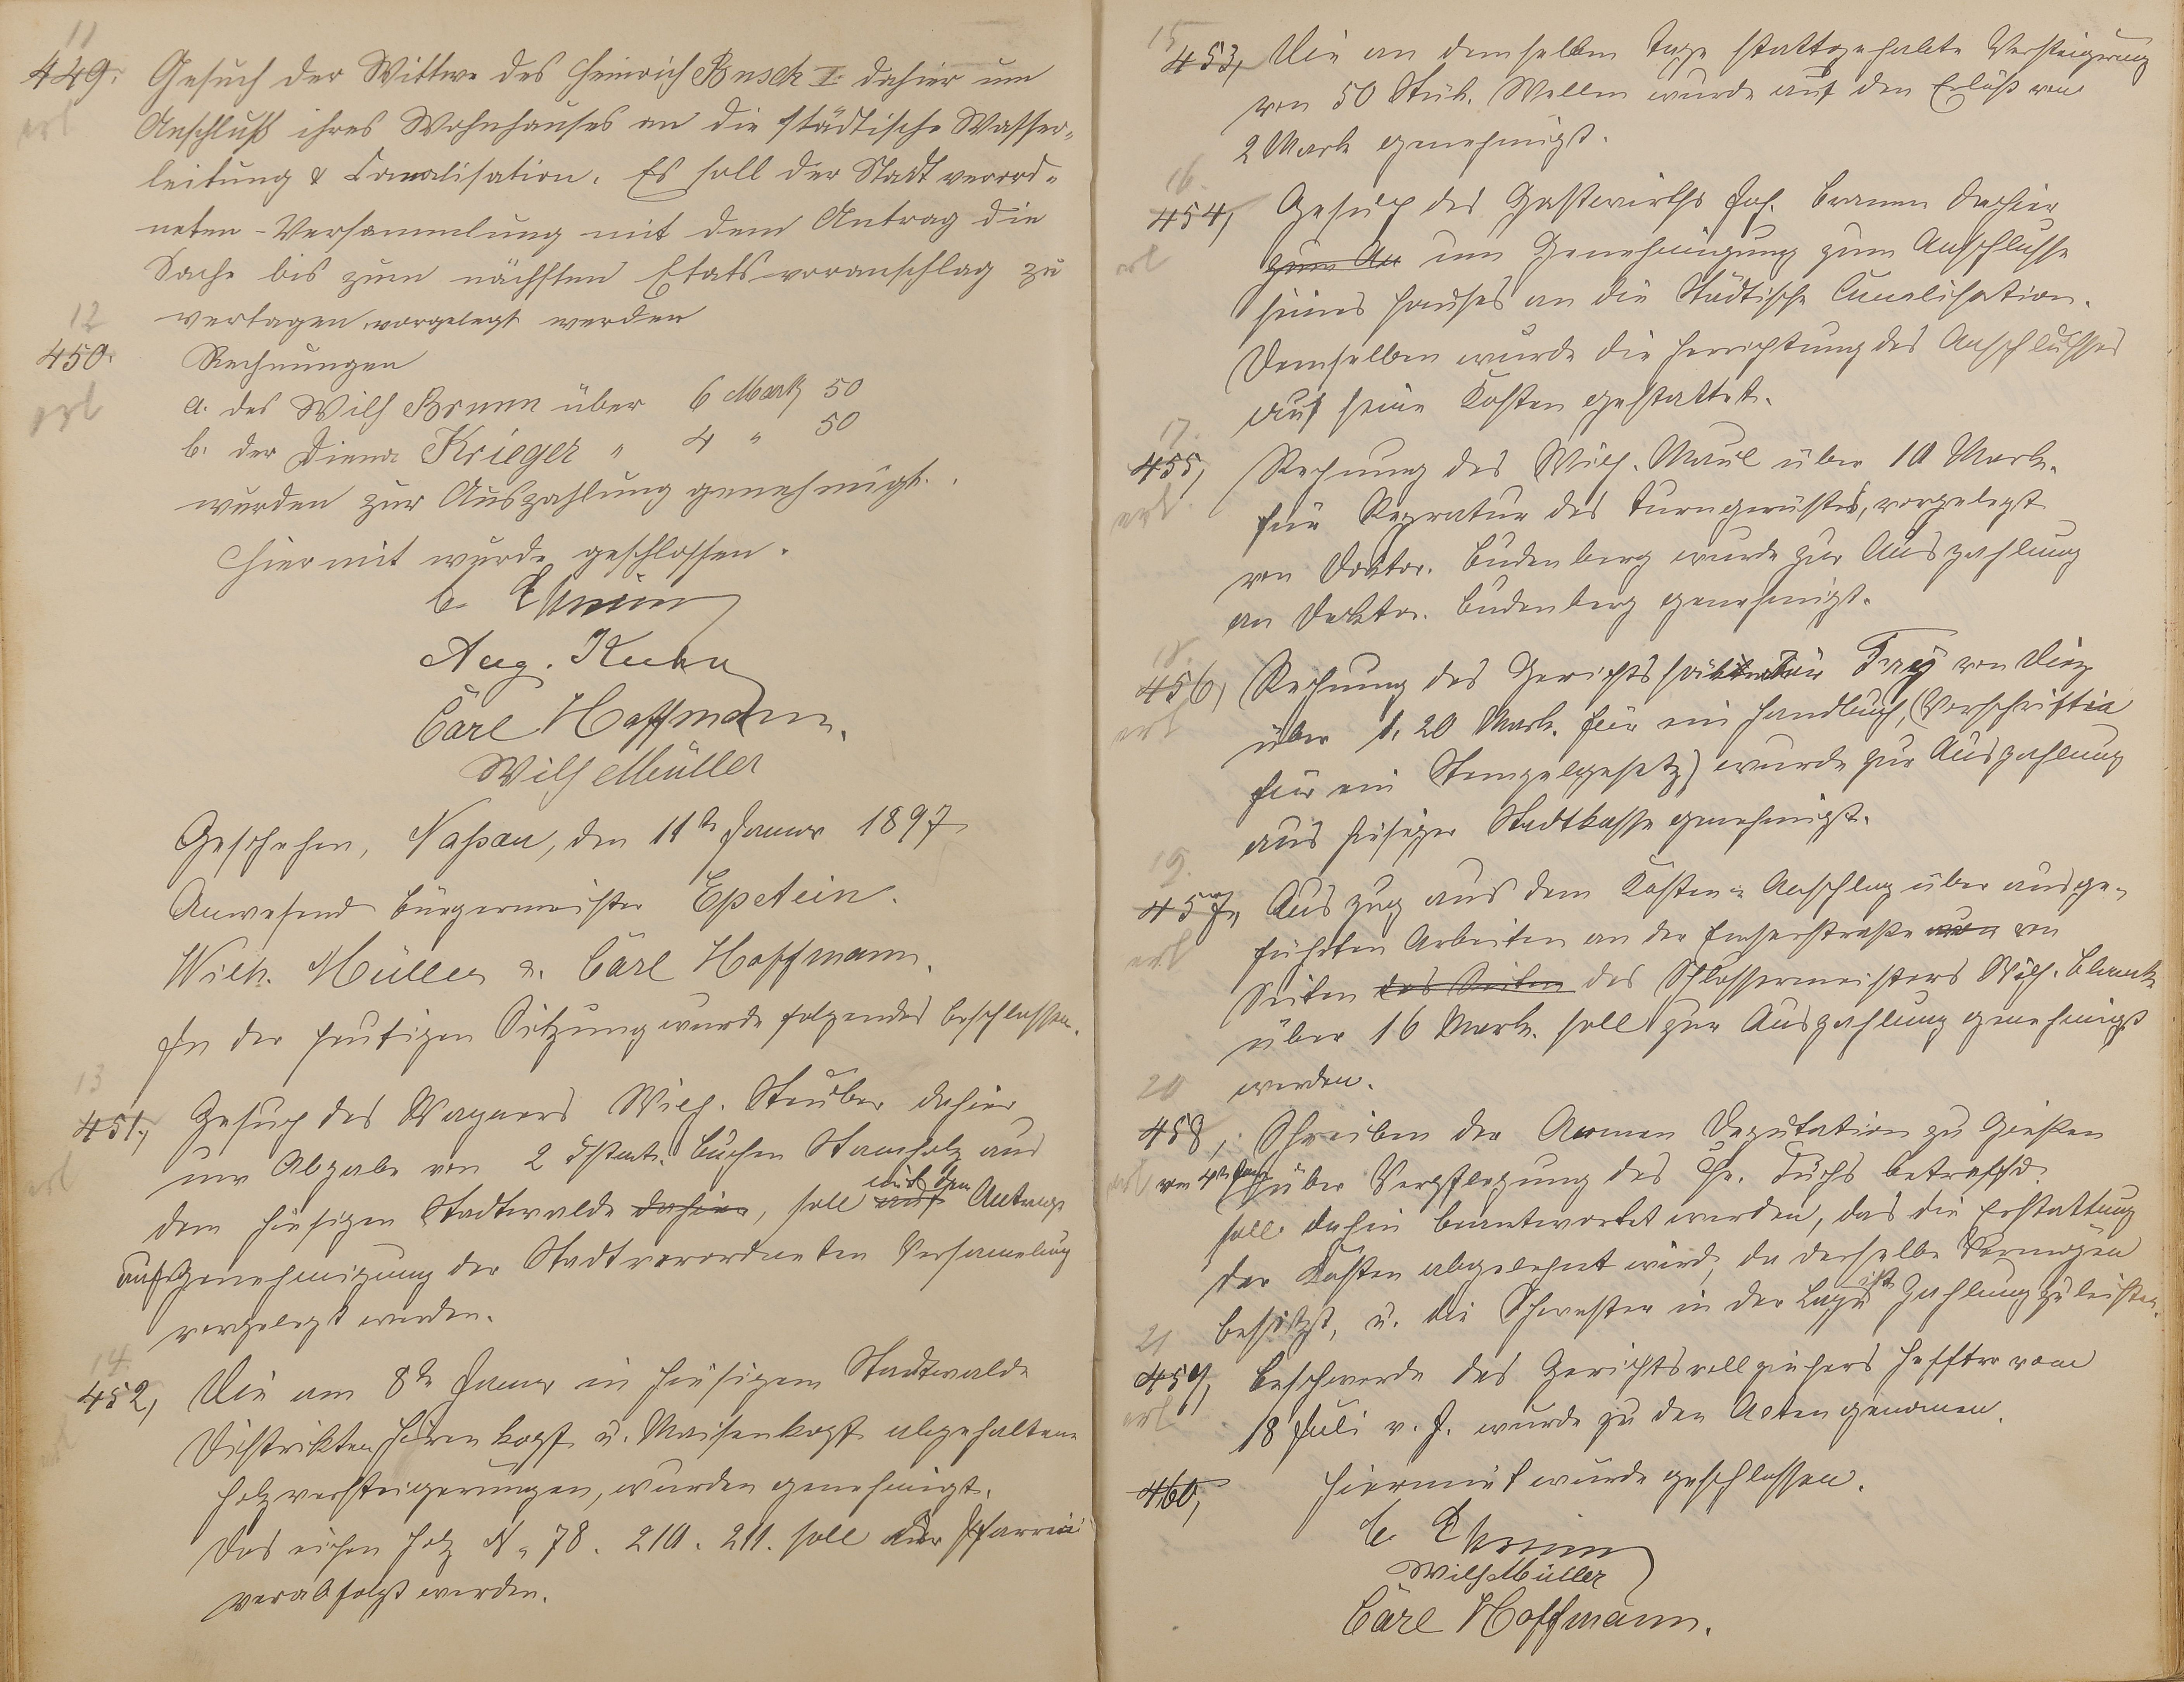 11
449. Gesuch der Wittwe des Heinrich Busch I. dahier um
erl Anschluß ihres Wohnhauses an die städtische Wasser-
leitung & Canalisation. Es soll der Stadtverord-
neten-Versammlung mit dem Antrag die
Sache bis zum nächsten Etatsvoranschlag zu
vertagen vorgelegt werden
12
450. Rechnungen
erl a. des Wilh Brunn über 6 Mark 50
b. der Diena Krieger " 4 " 50
wurden zur Auszahlung genehmigt.
Hiermit wurde geschlossen.
Aug. Kuhn
Carl Hoffmann.
Wilh Müller
Geschehen, Naßau, den 11te Januar 1897
Anwesend Bürgermeister Epstein.
Wilh. Müller u. Carl Hoffmann.
In der heutigen Sitzung wurde folgendes beschlossen.
13
451, Gesuch des Wagners Wilh. Steuber dahier
erl um Abgabe von 2 Buchen Stamholz aus
dem hiesigen Stadtwalde dahier, soll auf mit dem Antrage
auf Genehmigung der Stadtverordneten Versamelung
vorgelegt werden.
14.
452, Die am 8te Januar in hiesigem Stadtwalde
Distrikten Hirenkopf u. Maisenkopf abgehaltene
Holzversteigerungen, wurden genehmigt.
Das eichen Holz N. 78. 210. 211. soll der Pfarrei
verabfolgt werden.
15
453, Die an demselben Tage stattgehabte Versteigerung
von 50 Stük. Wellen wurde auf den Erlöß von
2 Mark genehmigt.
16.
454, Gesuch des Gastwirths Jos. Bramm dahier
erl zum An um Genehmigung zum Anschlusse
seines Hauses an die Städtische Canalisation.
Demselben wurde die Herrichtung des Anschlusses
auf seine Kosten gestattet.
17.
455, Rechnung des Wilh. Maul über 10 Mark.
erl. für Repratur des Turngerüstes, vorgelegt
von Doktor. Budenberg wurde zur Auszahlung
an Doktor. Budenberg genehmigt.
18.
456, Rechnung des Gerichtssekretär Frey von Diez
erl über 1,20 Mark. für ein Handbuch, (Vorschriften
für ein Stempelgesetz) wurde zur Auszahlung
aus hiesiger Stadtkasse genehmigt.
19.
457, Auszug aus dem Kosten-Anschlag über ausge-
erl führten Arbeiten an der Emserstraße von
Seiten des Seiten des Schlossermeisters Wilh. Blank
über 16 Mark. soll zur Auszahlung genehmigt
werden.
20
458, Schreiben der Armen Deputation zu Gießen
erl vom 4ten Janr über Verpflegung des Chr. Fuchs betreffd.
soll dahin beantwortet werden, das die Erstattung
der Kosten abgelehnt wird, da derselbe Vermögen
besitzt, u. die Schwester in der Lage ist Zahlung zu leisten.
21
459, Beschwerde des Gerichtsvollziehers Heffter vom
erl 18 Juli v. J. wurde zu den Acten genomen.
460, Hiermit wurde geschlossen.
Wilh Müller
Carl Hoffmann.